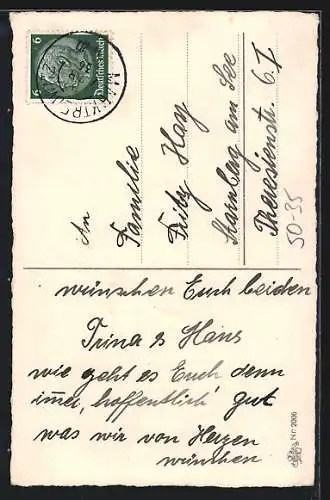 wünschen Euch beiden
Trina & Hans
wie geht es Euch denn
immer, hoffentlich gut
was wir von Herzen
wünschen
An
Familie
Fritz Hay
Starnberg am See
Theresienstr. 6 I
50-35
6 Deutsches Reich 6
Nr. 2006